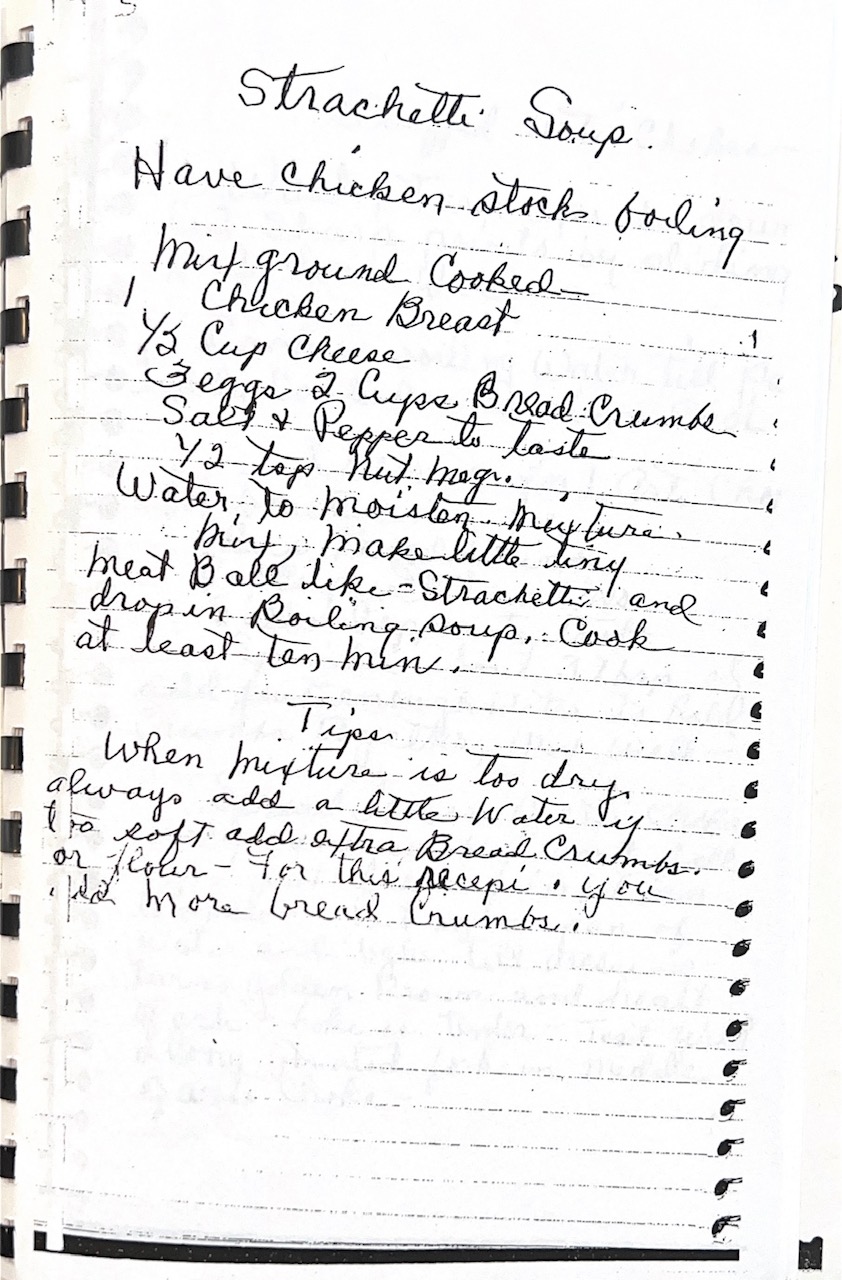 Strachetti Soup.
Have chicken stock boiling
Mix ground Cooked
1 Chicken Breast
1/2 Cup Cheese
3 eggs 2 Cups Bread Crumbs
Salt & Pepper to taste
1/2 tsp Nut meg.
Water to moisten mixture.
Mix, make little tiny
meat Ball like - Strachetti and
drop in Boiling soup. Cook
at least ten min.
Tips
When mixture is too dry,
always add a little Water if
too soft add extra Bread Crumbs.
or flour - For this recepi. you
more bread Crumbs.